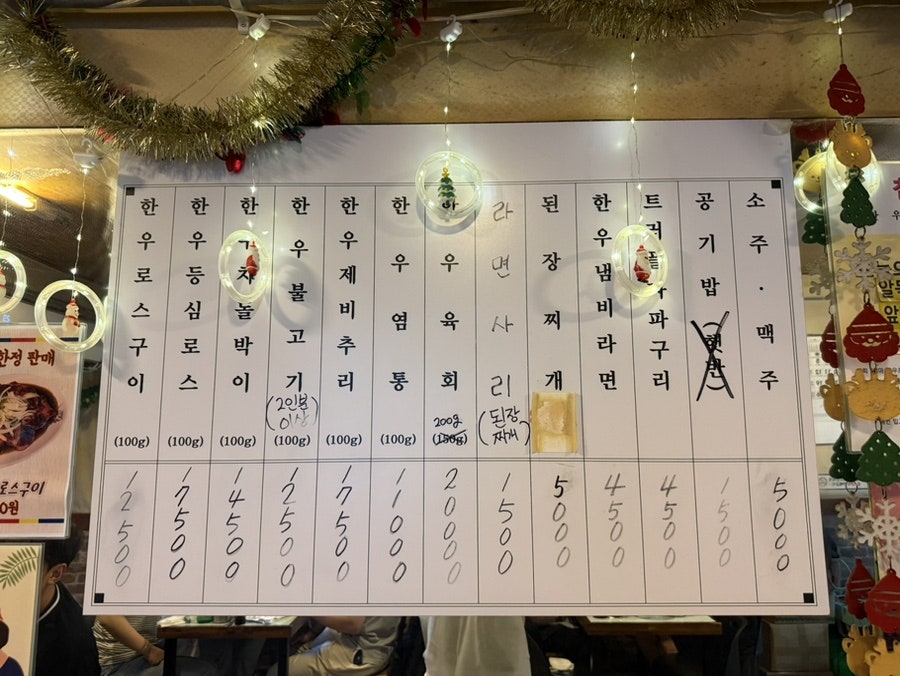 한우로스구이
(100g)
12500
한우등심로스
(100g)
17500
한우차돌박이
(100g)
14500
한우불고기
(2인분
이상)
(100g)
12500
한우제비추리
(100g)
17500
한우염통
(100g)
11000
한우육회
200g
(150g)
20000
라면사리
(된장
찌개)
1500
된장찌개
5000
한우냄비라면
4500
트러플짜파구리
4500
공기밥
햇반
1500
소주·맥주
5000
한정 판매
로스구이
0원